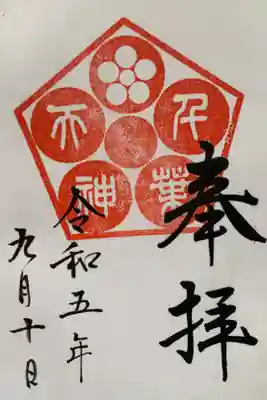 奉拝
千葉
天神
令和五年
九月十日